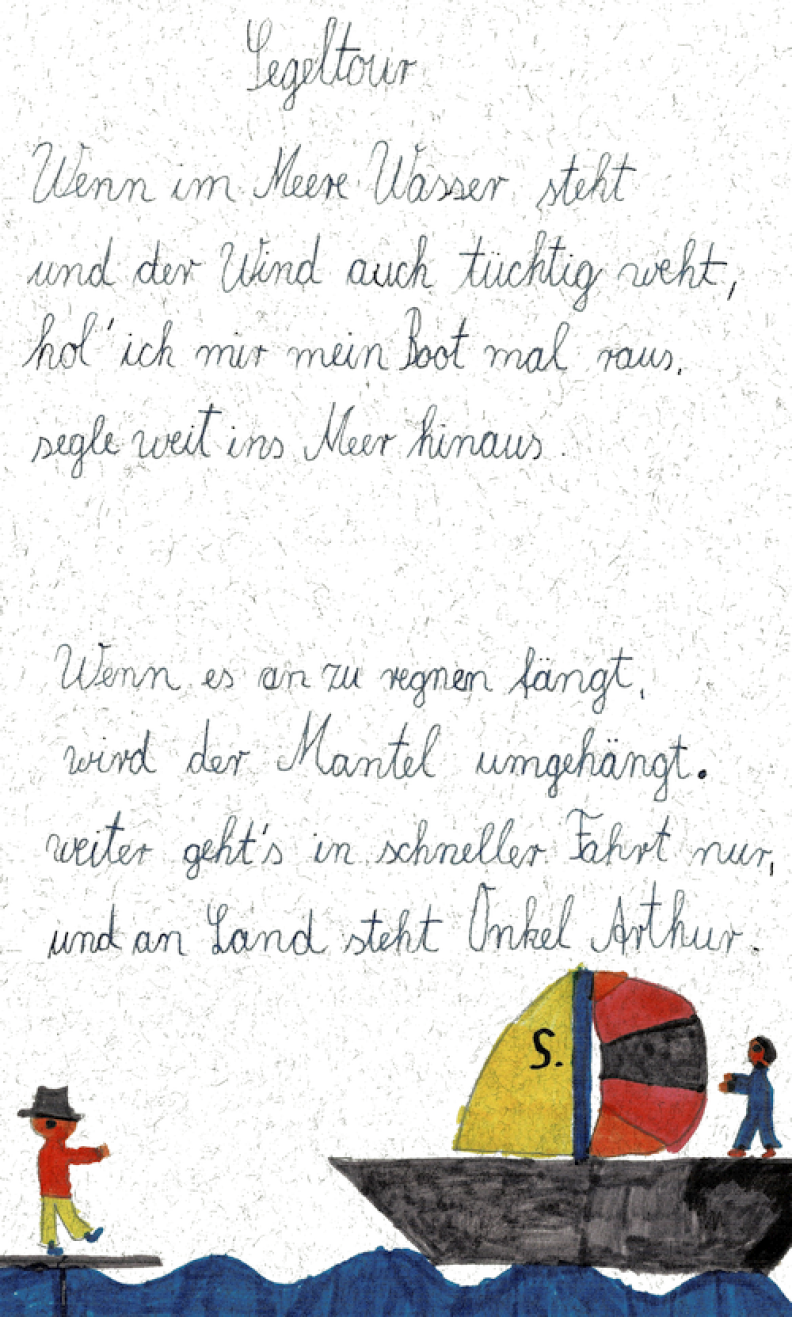 Segeltour
Wenn im Meere Wasser steht
und der Wind auch tüchtig weht,
hol' ich mir mein Boot mal raus,
segle weit ins Meer hinaus.
Wenn es an zu regnen fängt,
wird der Mantel umgehängt.
weiter geht's in schneller Fahrt nur,
und an Land steht Onkel Arthur.
S.